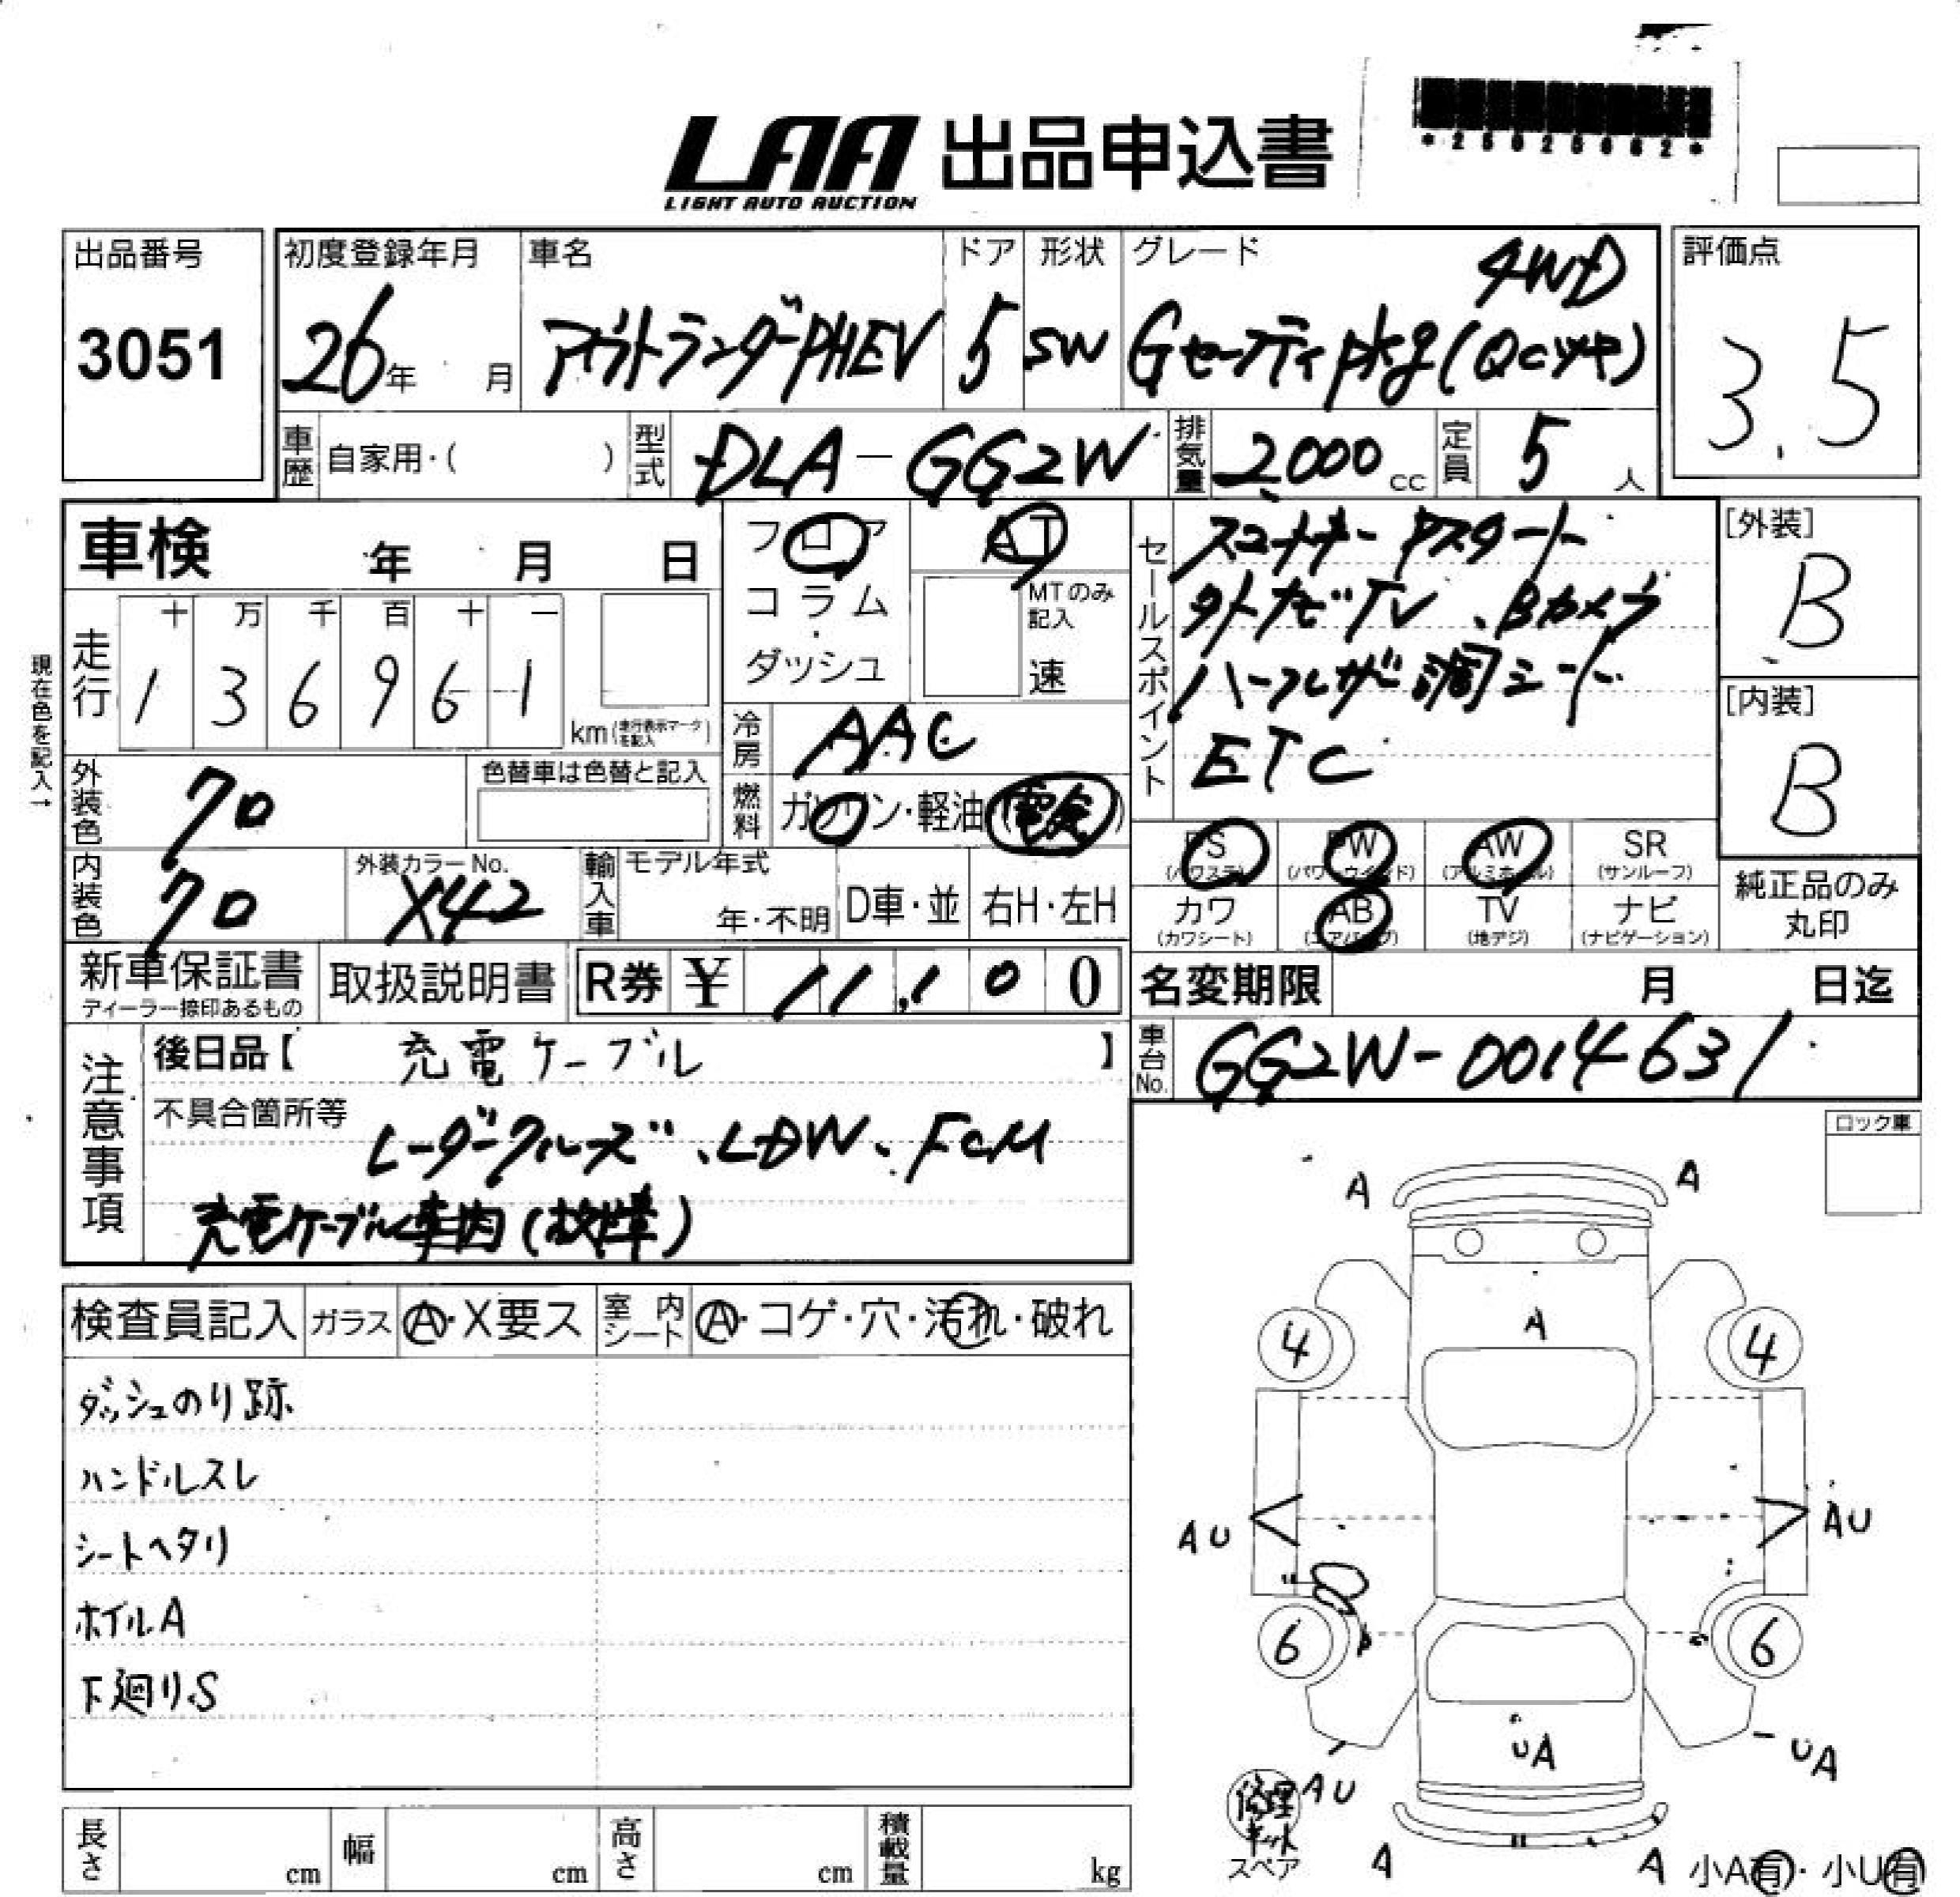 LAA 出品申込書
LIGHT AUTO AUCTION
出品番号
3051
初度登録年月
26年 月
車名
アウトランダーPHEV
ドア
5
形状
SW
グレード
4WD
Gセーフティpkg(
評価点
3.5
車歴 自家用・( )
型式 DLA-GG2W
排気量 2,000 cc
定員 5 人
車検 年 月 日
フロア
コラム
・
ダッシュ
AT
MTのみ
記入
速
セールスポイント
スマートキー Pスタート
外ナビTV、Bカメラ
ハーフレザー調シート
ETC
[外装]
B
[内装]
B
現在色を記入→
走行
十 万 千 百 十 一
1 3 6 9 6 1
km(走行表示マークを記入)
冷房 AAC
燃料 ガソリン・軽油(電気)
外装色 クロ
色替車は色替と記入
内装色 クロ
外装カラーNo.
X42
輸入車
モデル年式
年・不明
D車・並
右H・左H
PS
(パワステ)
PW
(パワーウインド)
AW
(アルミホイール)
SR
(サンルーフ)
カワ
(カワシート)
AB
(エアバッグ)
TV
(地デジ)
ナビ
(ナビゲーション)
純正品のみ
丸印
新車保証書
ディーラー捺印あるもの
取扱説明書
R券 ¥ 11,100
名変期限 月 日迄
車台No. GG2W-0014631
注意事項
後日品【 充電ケーブル 】
不具合箇所等
レーダークルーズ、LDW、FCM
充電ケーブル車内(故障)
ロック車
検査員記入
ガラス
A・X要ス
室内シート
A・コゲ・穴・汚れ・破れ
ダッシュのり跡
ハンドルスレ
シートヘタリ
ホイルA
下廻りS
A A
A
4 4
AU AU
6 6
UA
AU UA
修理キット
スペア
A A
小A有・小U有
長さ cm
幅 cm
高さ cm
積載量 kg